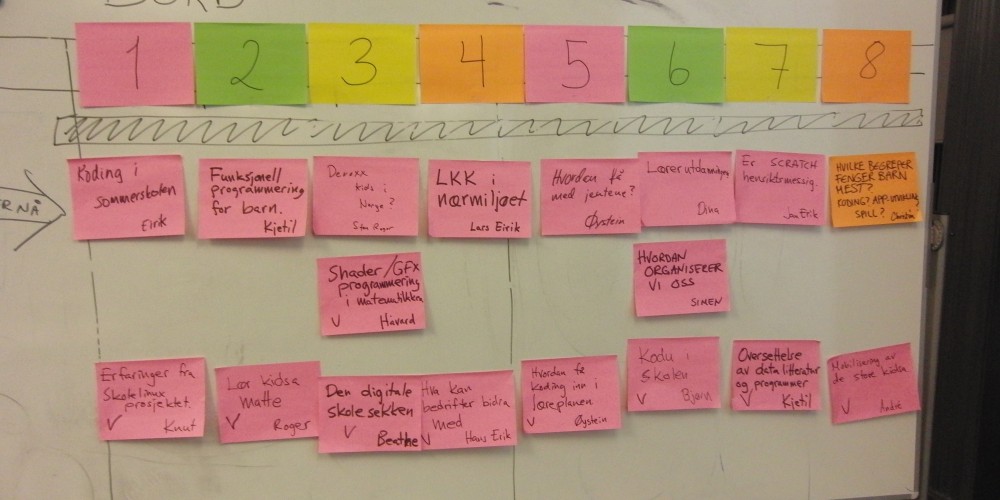 BORD
1 2 3 4 5 6 7 8
ER NÅ
Koding i
sommerskolen
Eirik
Funksjonell
programmering
for barn.
Kjetil
Devoxx
kids i
Norge?
Stein Roger
LKK i
nærmiljøet
Lars Eirik
Hvordan få
med jentene?
Øystein
Lærerutdanningen
Dina
Er SCRATCH
hensiktsmessig.
Jan Erik
HVILKE BEGREPER
FENGER BARN
MEST?
KODING? APP.UTVIKLING
SPILL?
Shader/GFX
programmering
i matematikken
✓ Håvard
HVORDAN
ORGANISERER
VI OSS
SIMEN
Erfaringer fra
Skolelinux
prosjektet.
✓ Knut
Lær kidsa
matte
✓ Roger
Den digitale
skolesekken
✓ Beathe
Hva kan
bedrifter bidra
med
✓ Hans Erik
Hvordan få
koding inn i
læreplanen
✓ Øystein
Kodu i
Skolen
✓ Bjørn
Oversettelse
av datalitteratur
og programmer
✓ Kjetil
Mobilisering av
de store kidsa
✓ André